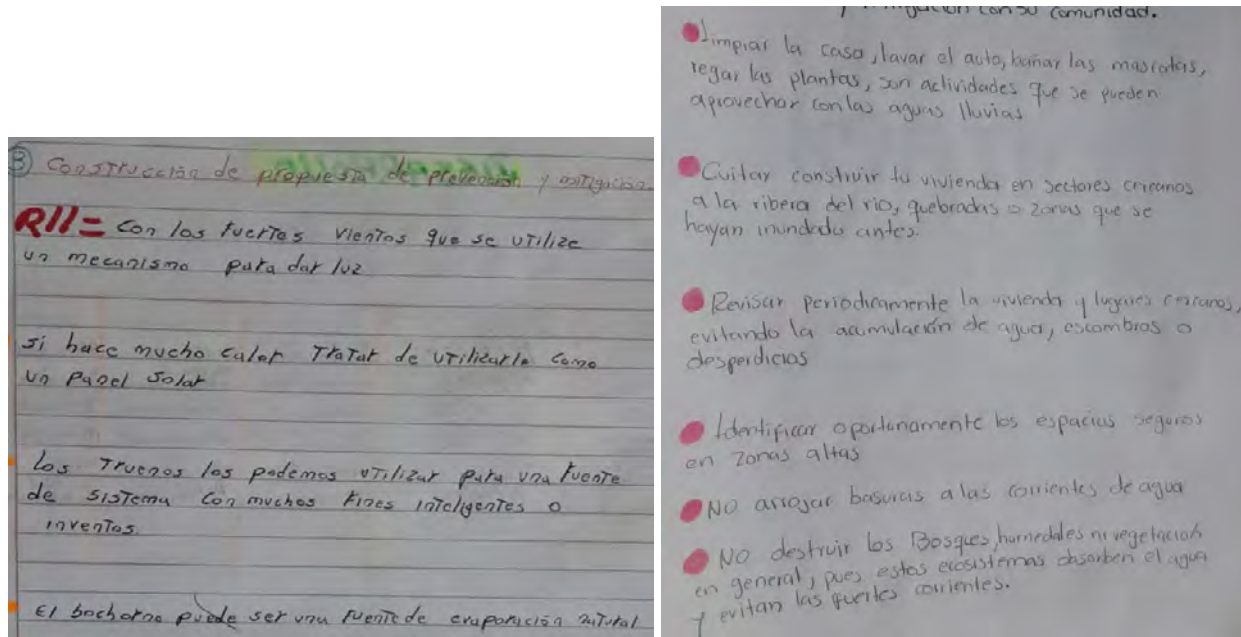 3 Construcción de propuesta de prevención y mitigación
R// = Con los fuertes vientos que se utilize
un mecanismo para dar luz
si hace mucho calor Tratar de utilizarlo como
un Panel Solar
Los Truenos los podemos utilizar para una fuente
de sistema con muchos fines inteligentes o
inventos
El bochorno puede ser una fuente de evaporación natural
con su comunidad.
Limpiar la casa, lavar el auto, bañar las mascotas,
regar las plantas, son actividades que se pueden
aprovechar con las aguas lluvias
Evitar construir tu vivienda en sectores cercanos
a la ribera del rio, quebradas o zonas que se
hayan inundado antes.
Revisar periodicamente la vivienda y lugares cercanos,
evitando la acumulación de agua, escombros o
desperdicios
Identificar oportunamente los espacios seguros
en zonas altas
NO arrojar basuras a las corrientes de agua
NO destruir los Bosques, humedales ni vegetación
en general, pues estos ecosistemas absorben el agua
y evitan las fuertes corrientes.